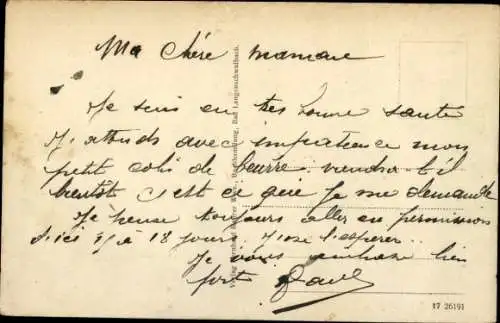 Ma chère maman
Je suis en très bonne santé
J'attends avec impatience mon
petit colis de beurre viendra t'il
bientôt c'est ce que je me demande
Je pense toujours aller en permission
d'ici 15 à 18 jours, j'ose l'espérer.
Je vous embrasse bien
fort Paul
Bad Langenschwalbach.
17 26191